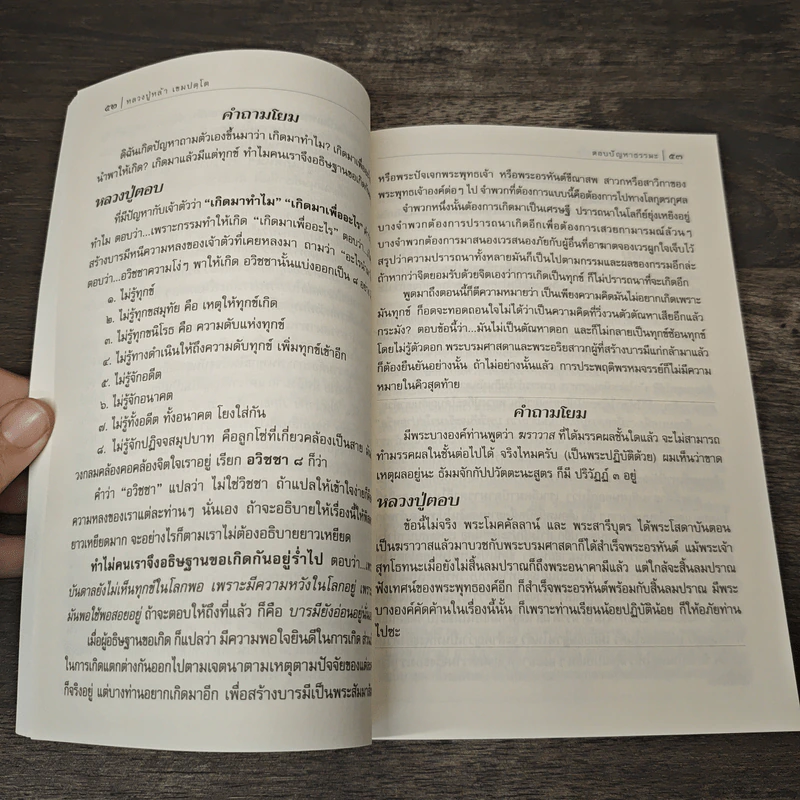 ๕๒ | หลวงปู่หล้า เขมปตฺโต
คำถามโยม
ดิฉันเกิดปัญหาถามตัวเองขึ้นมาว่า เกิดมาทำไม? เกิดมาเพื่อ
นำพาให้เกิด? เกิดมาแล้วมีแต่ทุกข์ ทำไมคนเราจึงอธิษฐานขอเกิด
หลวงปู่ตอบ
ที่มีปัญหากับเจ้าตัวว่า “เกิดมาทำไม” “เกิดมาเพื่ออะไร”
ทำไม ตอบว่า...เพราะกรรมทำให้เกิด “เกิดมาเพื่ออะไร” ตอบว่า
สร้างบารมีหนีความหลงของเจ้าตัวที่เคยหลงมา ถามว่า
ตอบว่า...อวิชชาความโง่ๆ พาให้เกิด อวิชชานั้นแบ่งออกเป็น ๘
๑. ไม่รู้ทุกข์
๒. ไม่รู้ทุกขสมุทัย คือ เหตุให้ทุกข์เกิด
๓. ไม่รู้ทุกขนิโรธ คือ ความดับแห่งทุกข์
๔. ไม่รู้ทางดำเนินให้ถึงความดับทุกข์ เพิ่มทุกข์เข้าอีก
๕. ไม่รู้จักอดีต
๖. ไม่รู้จักอนาคต
๗. ไม่รู้ทั้งอดีต ทั้งอนาคต โยงใส่กัน
๘. ไม่รู้จักปฏิจจสมุปบาท คือลูกโซ่ที่เกี่ยวคล้องเป็นสาย
วงกลมคล้องคอคล้องจิตใจเราอยู่ เรียก อวิชชา ๘ ก็ว่า
คำว่า “อวิชชา” แปลว่า ไม่ใช่วิชชา ถ้าแปลให้เข้าใจง่าย
ความหลงของเราแต่ละท่านๆ นั่นเอง ถ้าจะอธิบายให้เรื่องนี้ให้
ยาวเหยียดมาก จะอย่างไรก็ตามเราไม่ต้องอธิบายยาวเหยียด
ทำไมคนเราจึงอธิษฐานขอเกิดกันอยู่ร่ำไป ตอบว่า...
บันดาลยังไม่เห็นทุกข์ในโลกพอ เพราะมีความหวังในโลกอยู่
มันพอใช้พอสอยอยู่ ถ้าจะตอบให้ถึงที่แล้ว ก็คือ บารมียังอ่อนอยู่
เมื่อผู้อธิษฐานขอเกิด ก็แปลว่า มีความพอใจยินดีในการเกิด
ในการเกิดแตกต่างกันออกไปตามเจตนาตามเหตุตามปัจจัยของแต่
ก็จริงอยู่ แต่บางท่านอยากเกิดมาอีก เพื่อสร้างบารมีเป็นพระสัมมา
ตอบปัญหาธรรมะ | ๕๓
หรือพระปัจเจกพระพุทธเจ้า หรือพระอรหันต์ขีณาสพ สาวกหรือสาวิกาของ
พระพุทธเจ้าองค์ต่อๆ ไป จำพวกที่ต้องการแบบนี้คือต้องการไปทางโลกุตรกุศล
จำพวกหนึ่งนั้นต้องการเกิดมาเป็นเศรษฐี ปรารถนาในโลกีย์ยุ่งเหยิงอยู่
บางจำพวกต้องการปรารถนาเกิดอีกเพื่อต้องการเสวยกามารมณ์ล้วนๆ
บางจำพวกต้องการมาสนองเวรสนองภัยกับผู้อื่นที่อาฆาตจองเวรผูกใจเจ็บไว้
สรุปว่าความปรารถนาทั้งหลายมันก็เป็นไปตามกรรมและผลของกรรมอีกล่ะ
ถ้าหากว่าจิตยอมรับด้วยจิตเองว่าการเกิดเป็นทุกข์ ก็ไม่ปรารถนาที่จะเกิดอีก
พูดมาถึงตอนนี้ก็ตีความหมายว่า เป็นเพียงความคิดมันไม่อยากเกิดเพราะ
มันทุกข์ ก็อดจะทอดถอนใจไม่ได้ว่าเป็นความคิดที่วิ่งวนตัวตัณหาเสียอีกแล้ว
กระมัง? ตอบข้อนี้ว่า...มันไม่เป็นตัณหาดอก และก็ไม่กลายเป็นทุกข์ซ้อนทุกข์
โดยไม่รู้ตัวดอก พระบรมศาสดาและพระอริยสาวกผู้ที่สร้างบารมีแก่กล้ามาแล้ว
ก็ต้องยืนยันอย่างนั้น ถ้าไม่อย่างนั้นแล้ว การประพฤติพรหมจรรย์ก็ไม่มีความ
หมายในคิวสุดท้าย
คำถามโยม
มีพระบางองค์ท่านพูดว่า ฆราวาส ที่ได้มรรคผลชั้นใดแล้ว จะไม่สามารถ
ทำมรรคผลในชั้นต่อไปได้ จริงไหมครับ (เป็นพระปฏิบัติด้วย) ผมเห็นว่าขาด
เหตุผลอยู่นะ ธัมมจักกัปปวัตตะนะสูตร ก็มี ปริวัฏฏ์ ๓ อยู่
หลวงปู่ตอบ
ข้อนี้ไม่จริง พระโมคคัลลาน์ และ พระสารีบุตร ได้พระโสดาบันตอน
เป็นฆราวาสแล้วมาบวชกับพระบรมศาสดาก็ได้สำเร็จพระอรหันต์ แม้พระเจ้า
สุทโธทนะเมื่อยังไม่สิ้นลมปราณก็ถึงพระอนาคามีแล้ว แต่ใกล้จะสิ้นลมปราณ
ฟังเทศน์ของพระพุทธองค์อีก ก็สำเร็จพระอรหันต์พร้อมกับสิ้นลมปราณ มีพระ
บางองค์คัดค้านในเรื่องนี้นั้น ก็เพราะท่านเรียนน้อยปฏิบัติน้อย ก็ให้อภัยท่าน
ไปซะ